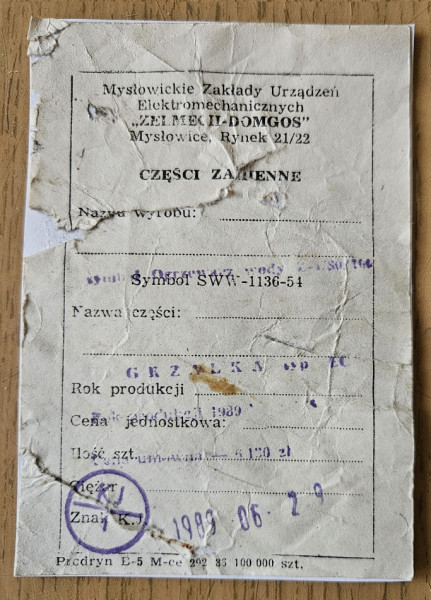 Mysłowickie Zakłady Urządzeń
Elektromechanicznych
„ZELMECH-DOMGOS"
Mysłowice, Rynek 21/22
CZĘŚCI ZAMIENNE
Nazwa wyrobu:
Ogrzewacz wody
Symbol SWW-1136-54
Nazwa części:
GRZAŁKA typ
Rok produkcji
Rok produkcji 1989
Cena jednostkowa:
Ilość szt.
Cena umowna —
zł
Ciężar
KJ
1
Znak K.J.
1989 -06- 29
Prodryn E-5 M-ce 292 85 100 000 szt.